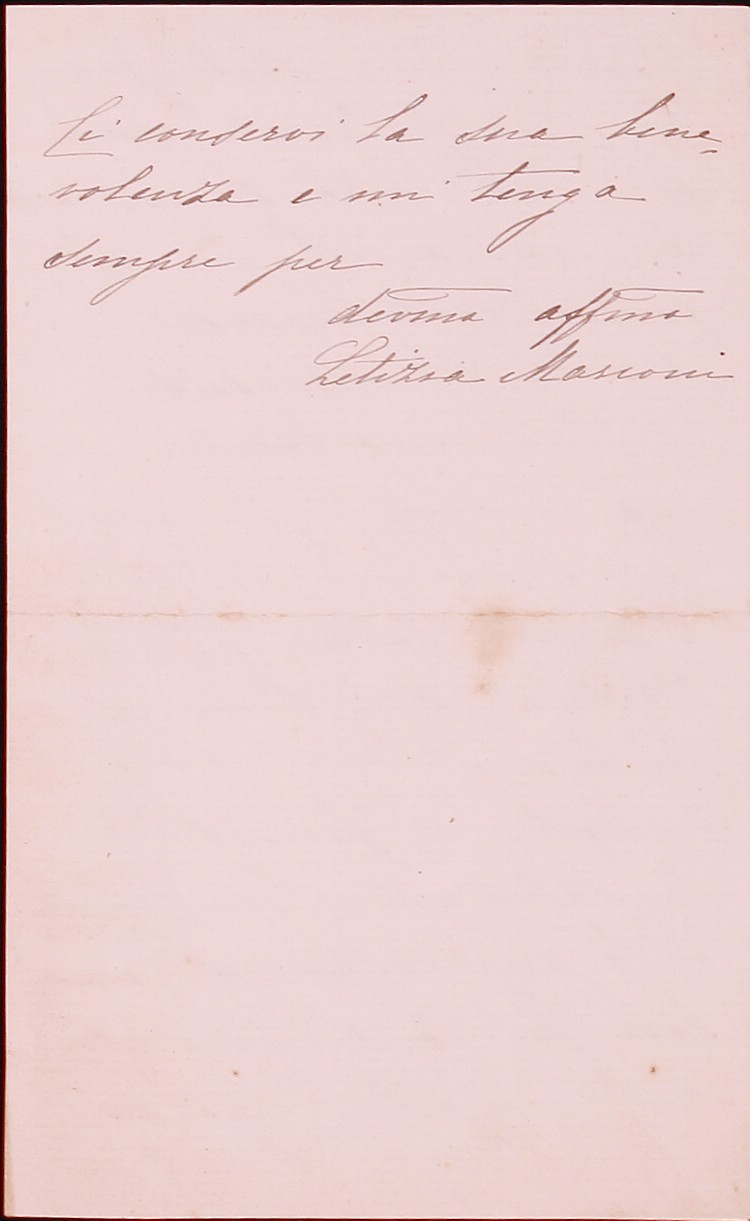 Ci conservi la sua bene-
volenza e mi tenga
sempre per
devma affma
Letizia Marconi